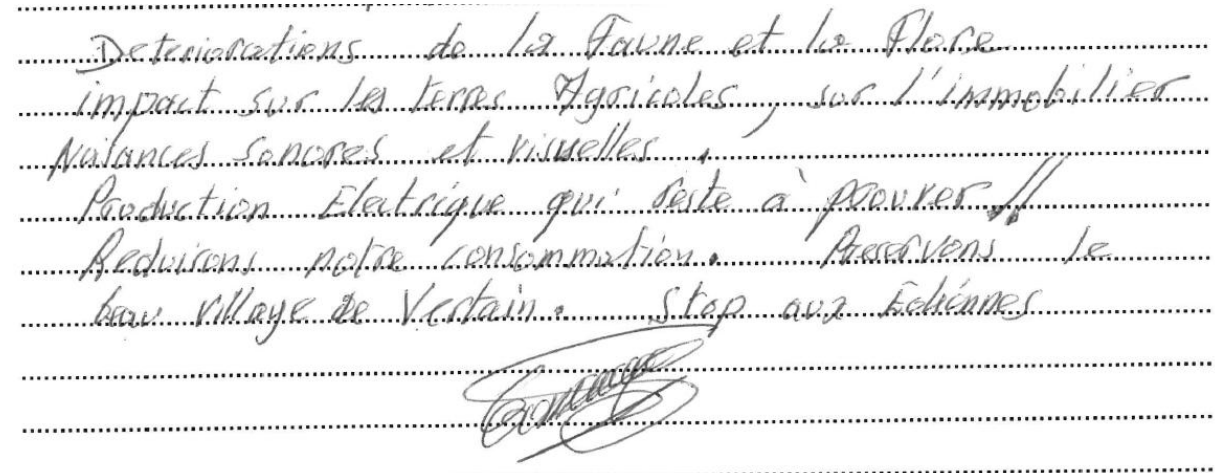 Deteriorations de la Faune et la Flore
impact sur les terres Agricoles, sur l'immobilier
Naisances sonores et visuelles.
Production Electrique qui reste à prouver !!
Reduisons notre consommation. Preservons le
beau village de Vertain. Stop aux Eoliénnes